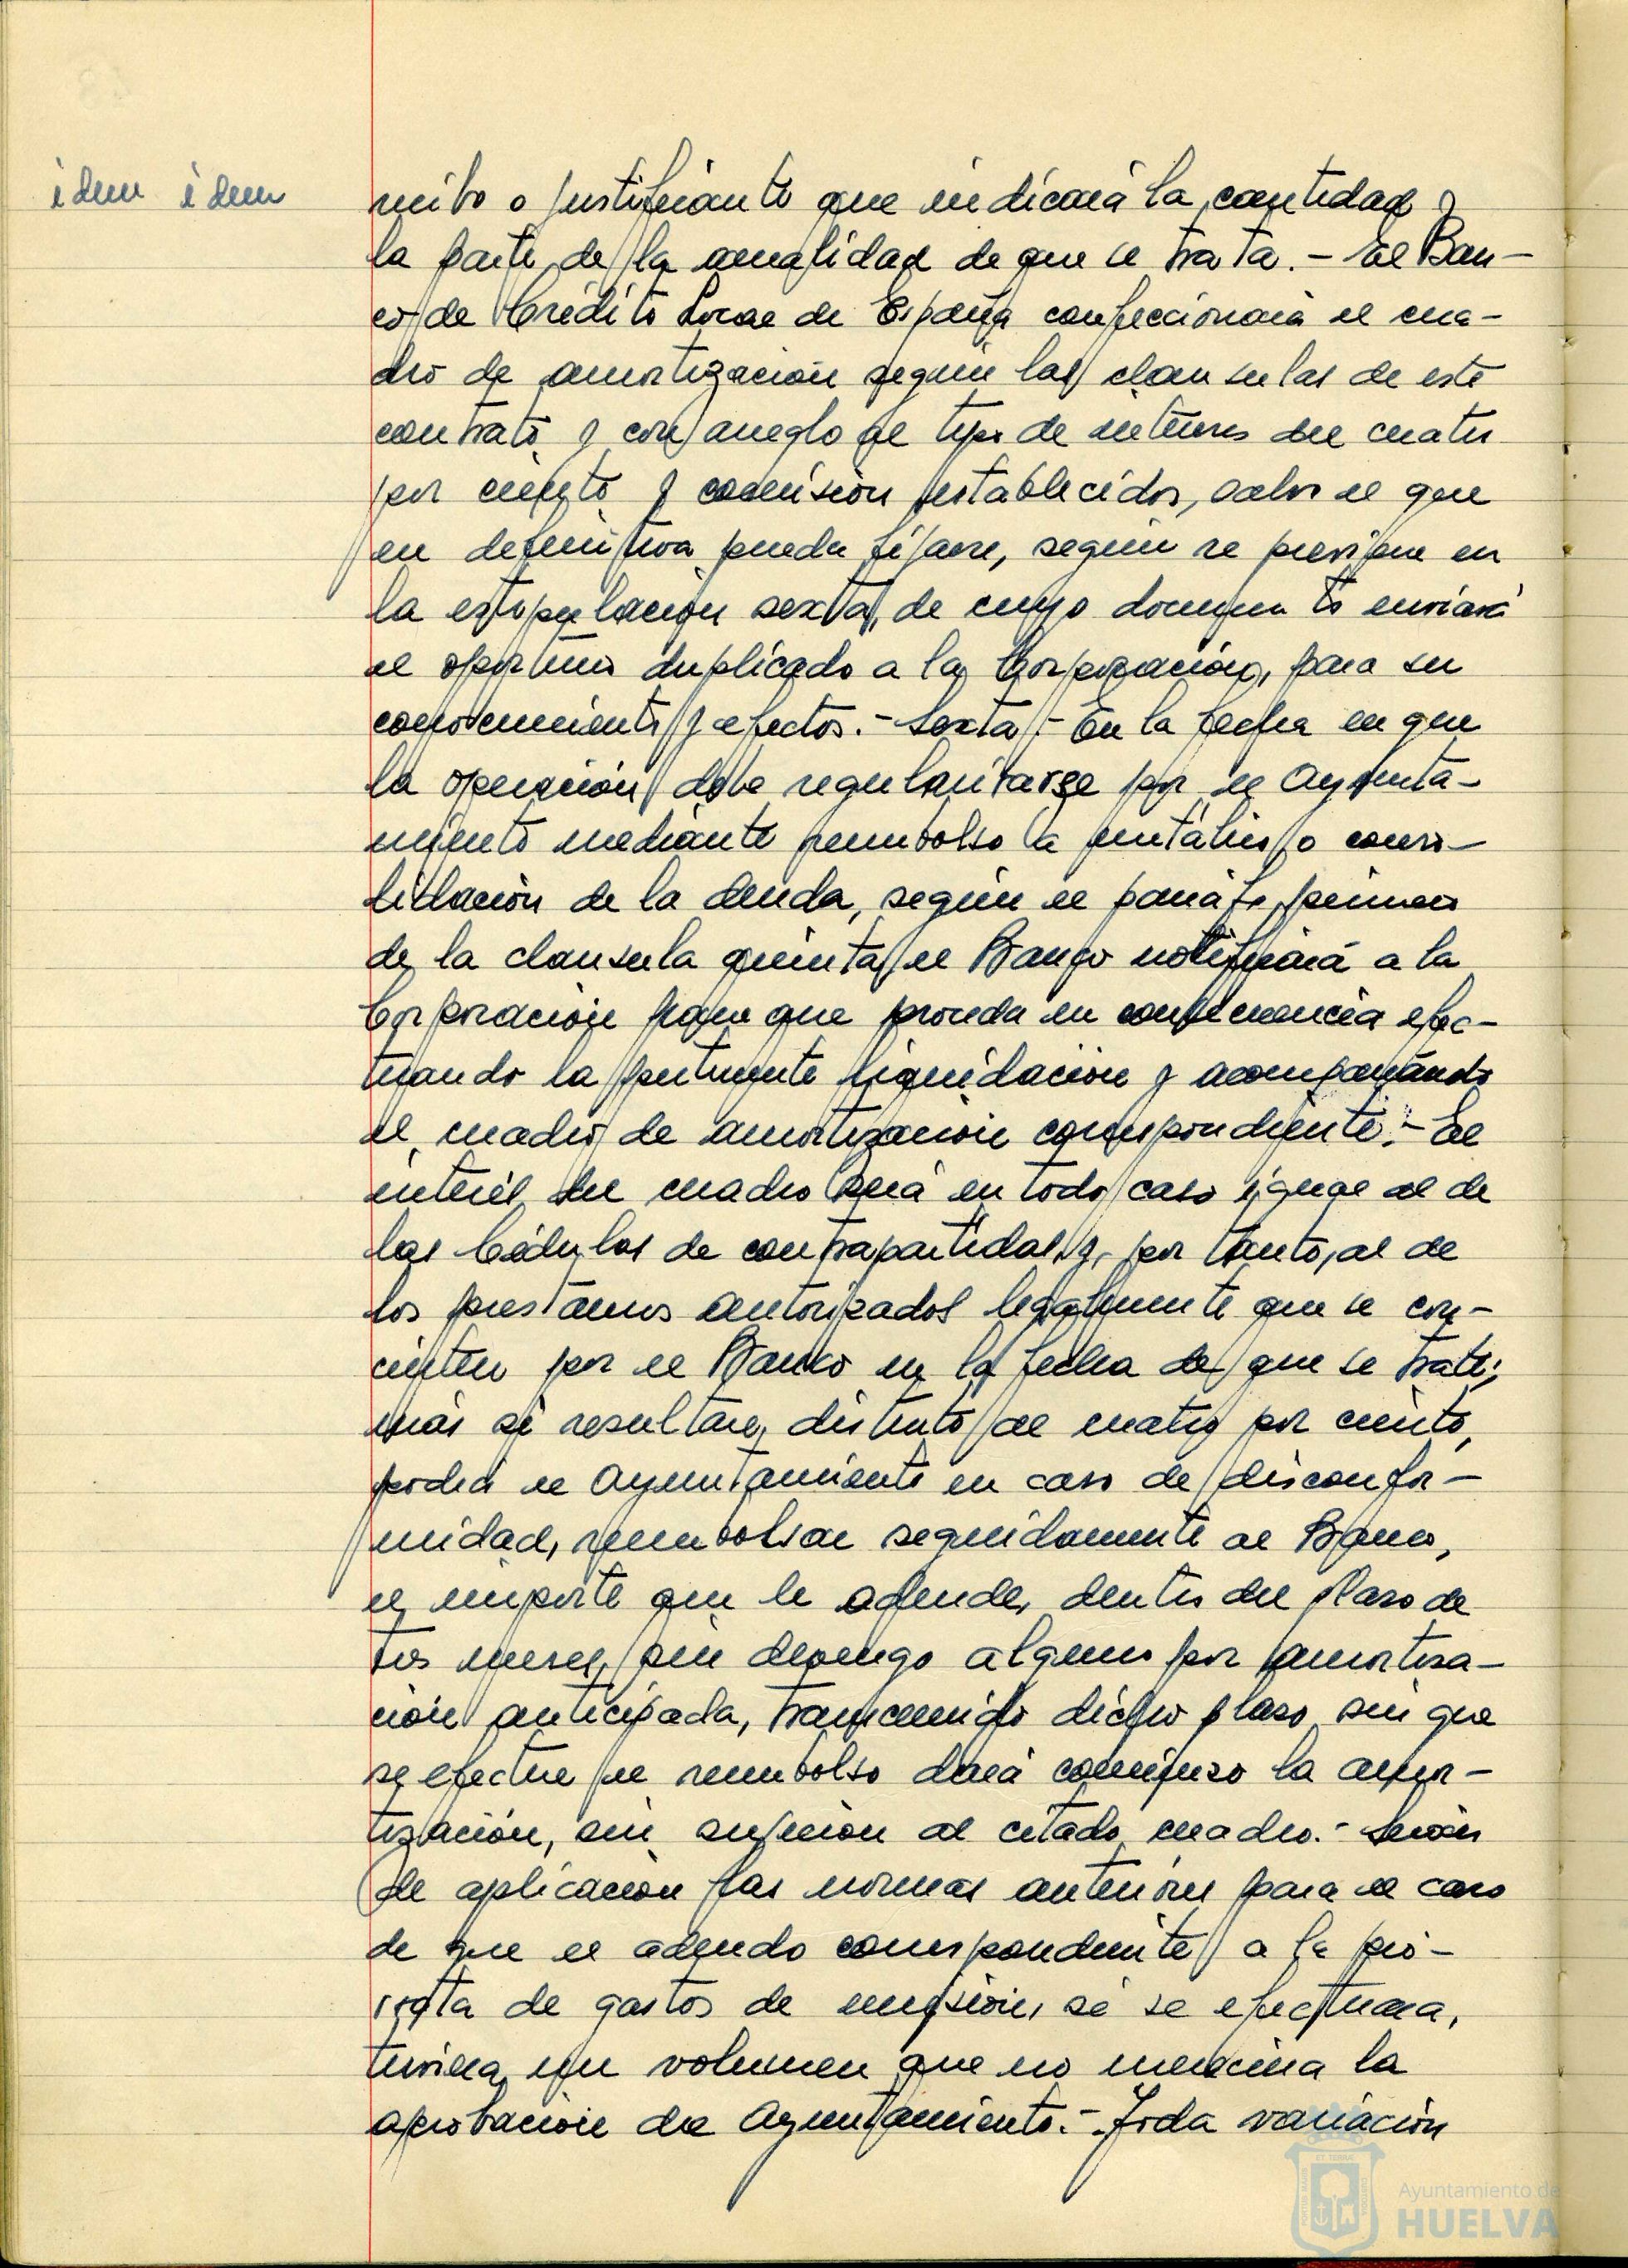 idem idem
recibo o justificante que indicará la cantidad y
la parte de la anualidad de que se trata.- El Ban-
co de Crédito Local de España confeccionará el cua-
dro de amortización según las clausulas de este
contrato y con arreglo al tipo de interes del cuatro
por ciento y comisión establecidos, salvo el que
en definitiva pueda fijarse, según se previene en
la estipulación sexta, de cuyo documento enviará
el oportuno duplicado a la Corporación, para su
conocimiento y efectos.- Sexta.- En la fecha en que
la operación deba regularizarse por el Ayunta-
miento mediante reembolso a metálico o conso-
lidación de la deuda, según el parrafo primero
de la clausula quinta, el Banco notificará a la
Corporación para que proceda en consecuencia efec-
tuando la pertinente liquidación y acompañando
el cuadro de amortización correspondiente.- El
interés del cuadro será en todo caso igual al de
las Cédulas de contrapartidas y, por tanto, al de
los prestamos autorizados legalmente que se con-
cierten por el Banco en la fecha de que se trate;
mas si resultare distinto al cuatro por ciento,
podrá el Ayuntamiento en caso de disconfor-
midad, reembolsar seguidamente al Banco,
el importe que le adeude, dentro del plazo de
tres meses, sin devengo alguno por amortiza-
ción anticipada, transcurrido dicho plazo sin que
se efectue el reembolso dará comienzo la amor-
tización, con sujeción al citado cuadro.- Serán
de aplicación las normas anteriores para el caso
de que el adeudo correspondiente a la pro-
rrata de gastos de emisión, si se efectuara,
tuviera un volumen que no mereciera la
aprobación del Ayuntamiento.- Toda variación
Ayuntamiento de
HUELVA